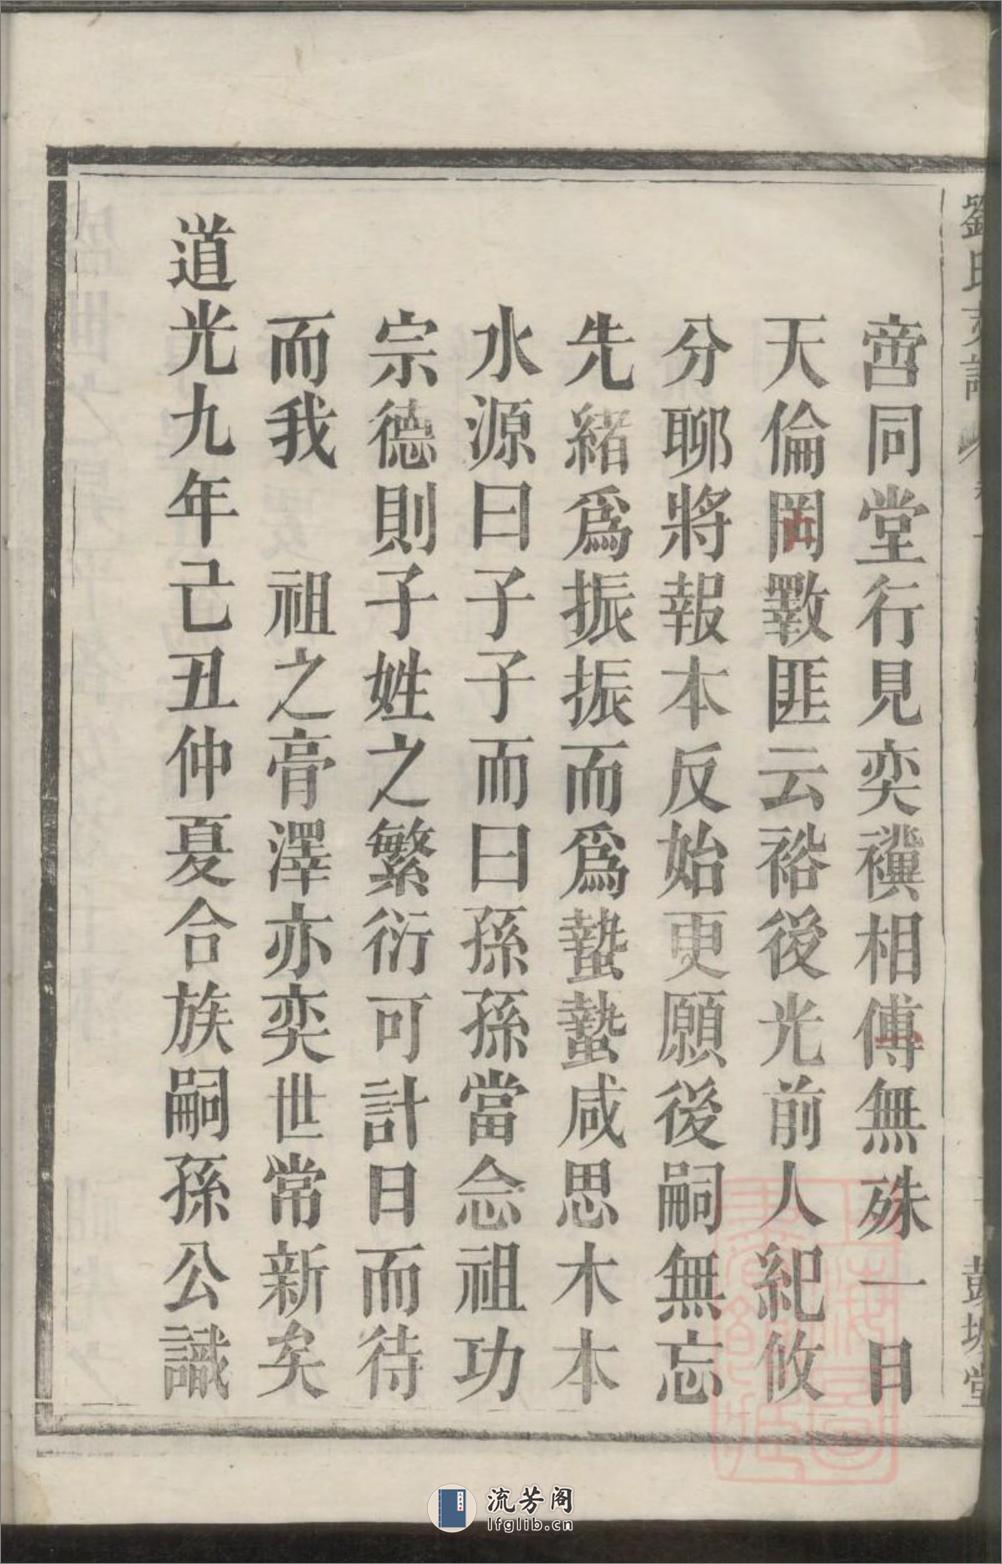 啻同堂行見奕禩相傳無殊一日
天倫罔斁匪云裕後光前人紀攸
分聊將報本反始更願後嗣無忘
先緒爲振振而爲蟄蟄咸思木本
水源曰子子而曰孫孫當念祖功
宗德則子姓之繁衍可計日而待
而我 祖之膏澤亦奕世常新矣
道光九年己丑仲夏合族嗣孫公識
流芳阁
lfglib.cn